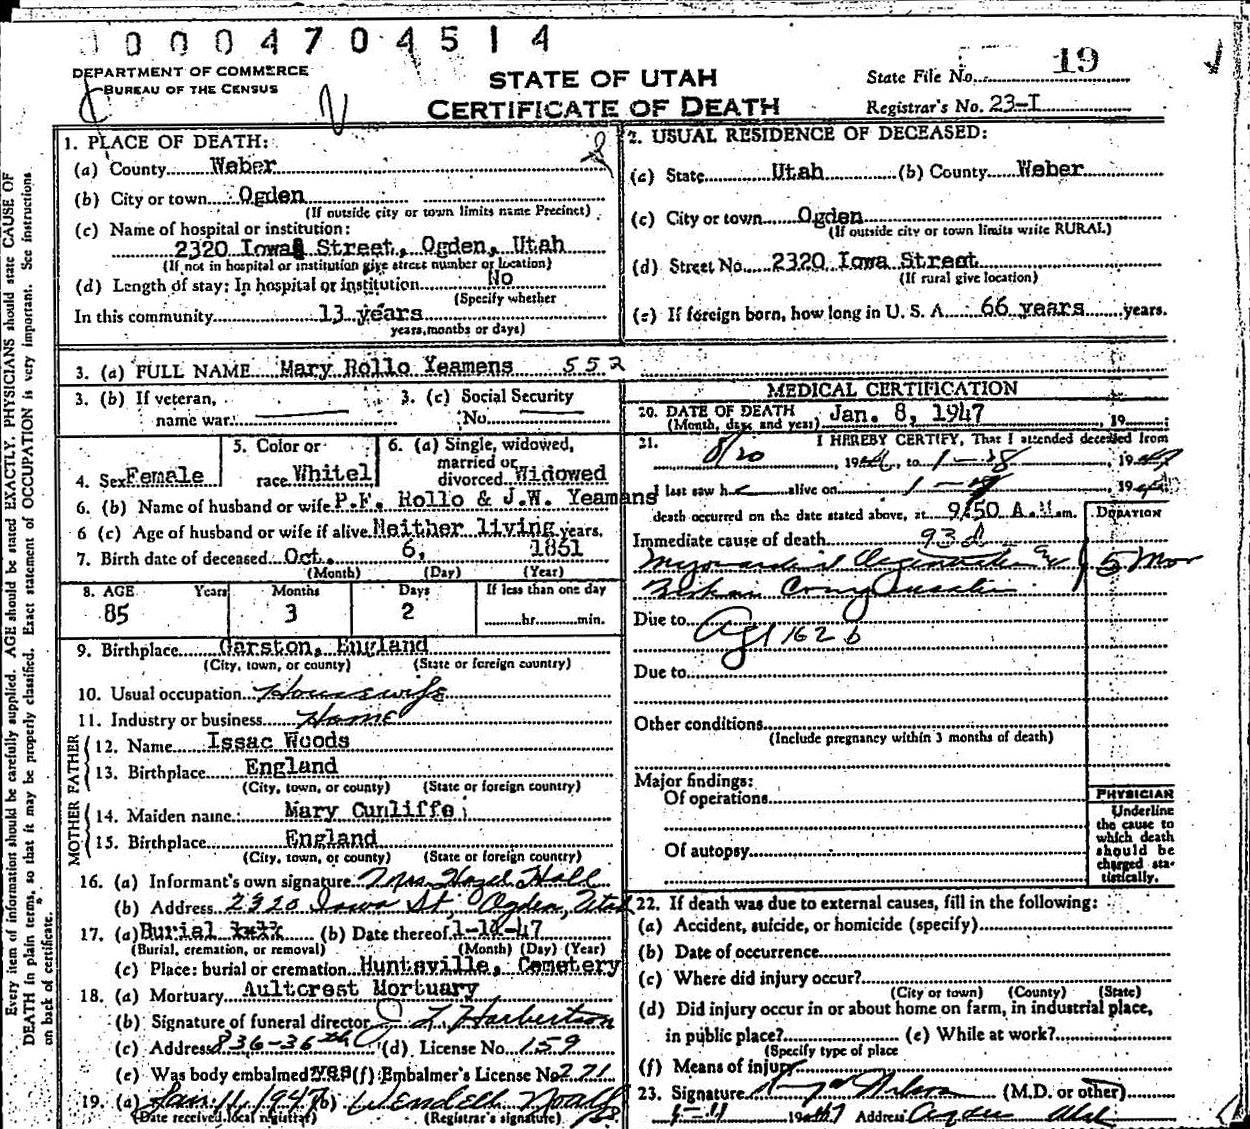 0 0 0 0 4 7 0 4 5 1 4
DEPARTMENT OF COMMERCE
BUREAU OF THE CENSUS
STATE OF UTAH
CERTIFICATE OF DEATH
State File No. 19
Registrar's No. 23-I
Every item of information should be carefully supplied. AGE should be stated EXACTLY. PHYSICIANS should state CAUSE OF
DEATH in plain terms, so that it may be properly classified. Exact statement of OCCUPATION is very important. See instructions
on back of certificate.
1. PLACE OF DEATH:
(a) County Weber
(b) City or town Ogden
(If outside city or town limits name Precinct)
(c) Name of hospital or institution:
2320 Iowa Street, Ogden, Utah
(If not in hospital or institution give street number or location)
(d) Length of stay: In hospital or institution No
(Specify whether
In this community 13 years
years, months or days)
2. USUAL RESIDENCE OF DECEASED:
(a) State Utah (b) County Weber
(c) City or town Ogden
(If outside city or town limits write RURAL)
(d) Street No. 2320 Iowa Street
(If rural give location)
(e) If foreign born, how long in U. S. A. 66 years years.
3. (a) FULL NAME Mary Rollo Yeamens 552
3. (b) If veteran,
name war.
3. (c) Social Security
No.
4. Sex Female
5. Color or
race Whitel
6. (a) Single, widowed,
married or
divorced Widowed
6. (b) Name of husband or wife P.F. Rollo & J.W. Yeamans
6 (c) Age of husband or wife if alive Neither living years.
7. Birth date of deceased Oct. 6, 1861
(Month) (Day) (Year)
8. AGE Years Months Days If less than one day
85 3 2 hr. min.
9. Birthplace Garston, England
(City, town, or county) (State or foreign country)
10. Usual occupation Housewife
11. Industry or business Home
FATHER
12. Name Issac Woods
13. Birthplace England
(City, town, or county) (State or foreign country)
MOTHER
14. Maiden name Mary Cunliffe
15. Birthplace England
(City, town, or county) (State or foreign country)
16. (a) Informant's own signature Mrs. Hazel Hall
(b) Address 2320 Iowa St, Ogden, Utah
17. (a) Burial (b) Date thereof 1-1-47
(Burial, cremation, or removal) (Month) (Day) (Year)
(c) Place: burial or cremation Huntsville, Cemetery
18. (a) Mortuary Aultcrest Mortuary
(b) Signature of funeral director L. Harbertson
(c) Address 836-36th (d) License No. 159
(e) Was body embalmed? yes (f) Embalmer's License No. 221
19. (a) Jan. 11, 1947 (b) Wendell Noall
(Date received local registrar) (Registrar's signature)
MEDICAL CERTIFICATION
20. DATE OF DEATH Jan. 8, 1947 19
(Month, day, and year)
21. I HEREBY CERTIFY, That I attended deceased from
8/20, 19, to 1-, 19
I last saw h alive on 1-, 19
death occurred on the date stated above, at 9:50 A.M. m.
DURATION
Immediate cause of death 93d
Myocardial Degeneration 5 Mos
Due to Age 162 b
Due to
Other conditions
(Include pregnancy within 3 months of death)
Major findings:
Of operations
Of autopsy
PHYSICIAN
Underline
the cause to
which death
should be
charged sta-
tistically.
22. If death was due to external causes, fill in the following:
(a) Accident, suicide, or homicide (specify)
(b) Date of occurrence
(c) Where did injury occur?
(City or town) (County) (State)
(d) Did injury occur in or about home on farm, in industrial place,
in public place? (e) While at work?
(Specify type of place
(f) Means of injury
23. Signature Wilson (M.D. or other)
1-11 1947 Address Ogden Utah